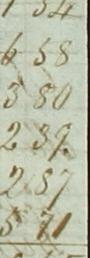 1 54
6 58
3 80
2 39
2 87
5 71